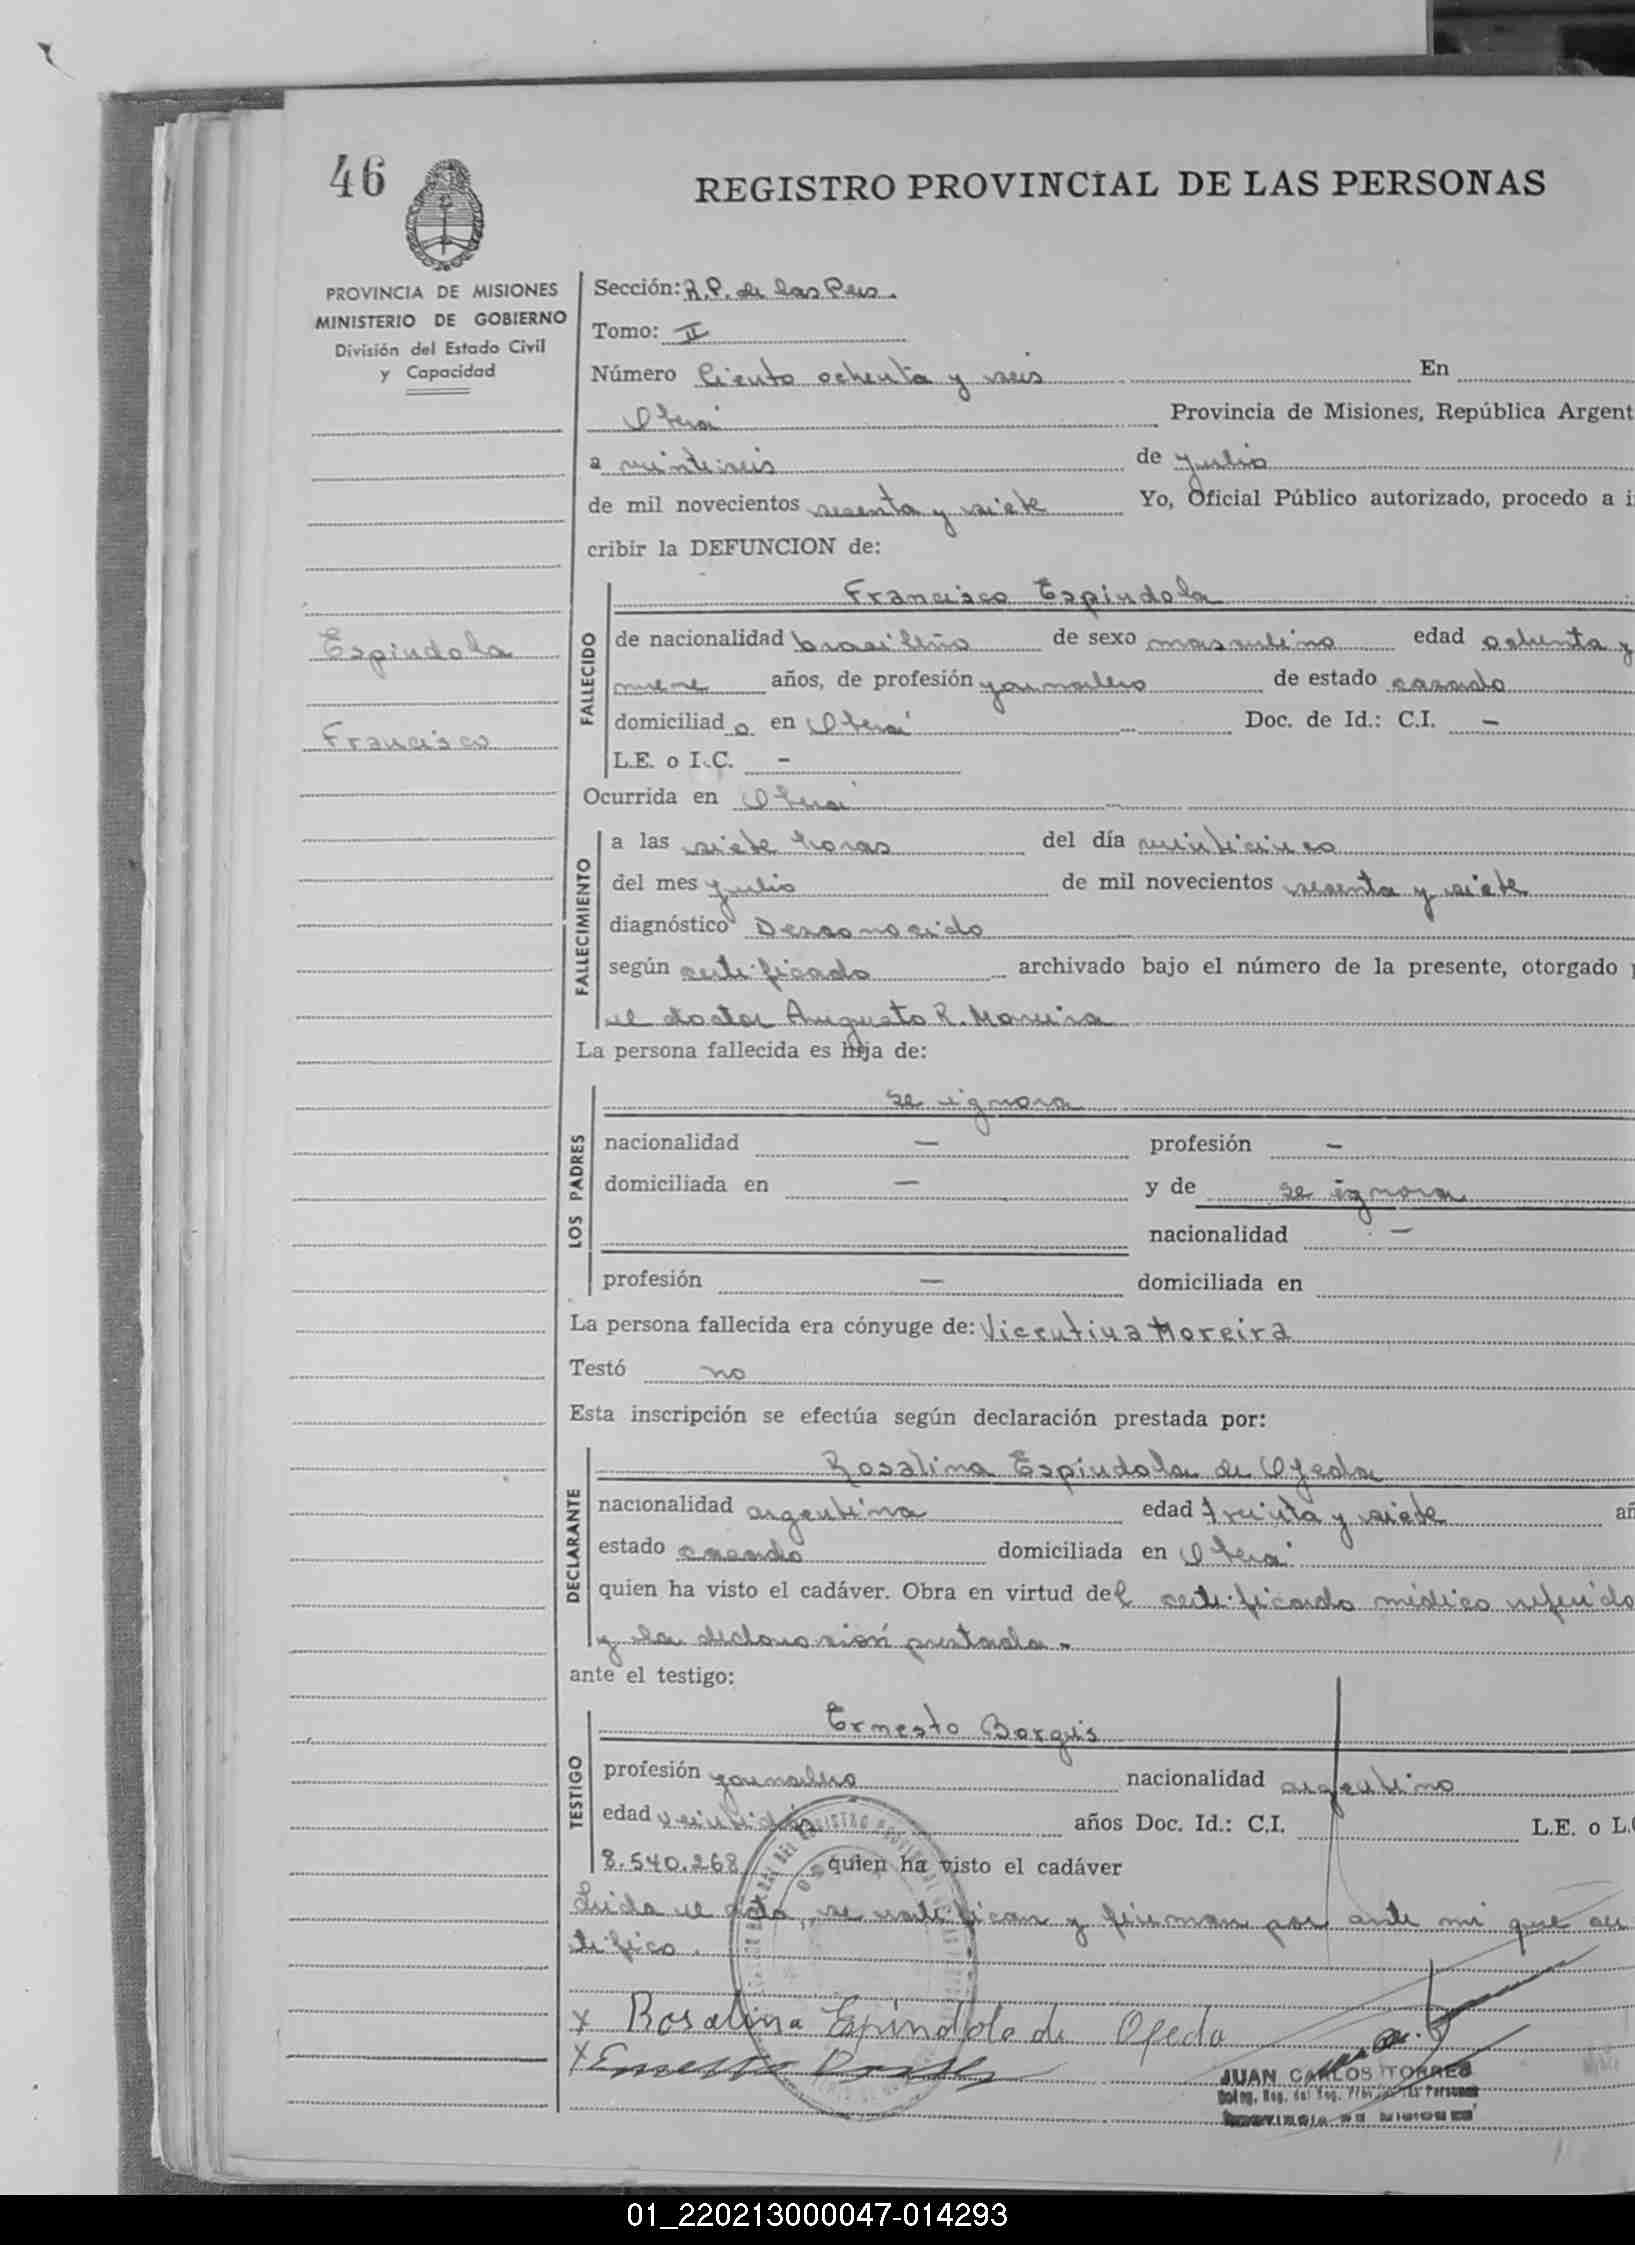 46
REGISTRO PROVINCIAL DE LAS PERSONAS
PROVINCIA DE MISIONES
MINISTERIO DE GOBIERNO
División del Estado Civil
y Capacidad
Espindola
Francisco
Sección: R.P. de las Pers.
Tomo: II
Número Ciento ochenta y seis En
Oberá Provincia de Misiones, República Argent
a veintiseis de julio
de mil novecientos sesenta y siete Yo, Oficial Público autorizado, procedo a i
cribir la DEFUNCION de:
FALLECIDO
Francisco Espindola
de nacionalidad brasileño de sexo masculino edad ochenta y
nueve años, de profesión jornalero de estado casado
domiciliad o en Oberá Doc. de Id.: C.I. —
L.E. o I.C. —
Ocurrida en Oberá
FALLECIMIENTO
a las siete horas del día veinticinco
del mes julio de mil novecientos sesenta y siete
diagnóstico Desconocido
según certificado archivado bajo el número de la presente, otorgado
el doctor Augusto R. Moreira
La persona fallecida es hija de:
LOS PADRES
se ignora
nacionalidad — profesión —
domiciliada en — y de se ignora
nacionalidad —
profesión — domiciliada en
La persona fallecida era cónyuge de: Vicentina Moreira
Testó no
Esta inscripción se efectúa según declaración prestada por:
DECLARANTE
Rosalina Espindola de Ojeda
nacionalidad argentina edad treinta y siete añ
estado casada domiciliada en Oberá
quien ha visto el cadáver. Obra en virtud del certificado médico referido
y la declaración prestada -
ante el testigo:
TESTIGO
Ernesto Borguis
profesión jornalero nacionalidad argentino
edad años Doc. Id.: C.I. L.E. o I.
8.540.268 quien ha visto el cadáver
Leida el acta, se ratifican y firman por ante mi que cer
tifico.
x Rosalina Espindola de Ojeda
x Ernesto
JUAN CARLOS TORRES
01_220213000047-014293